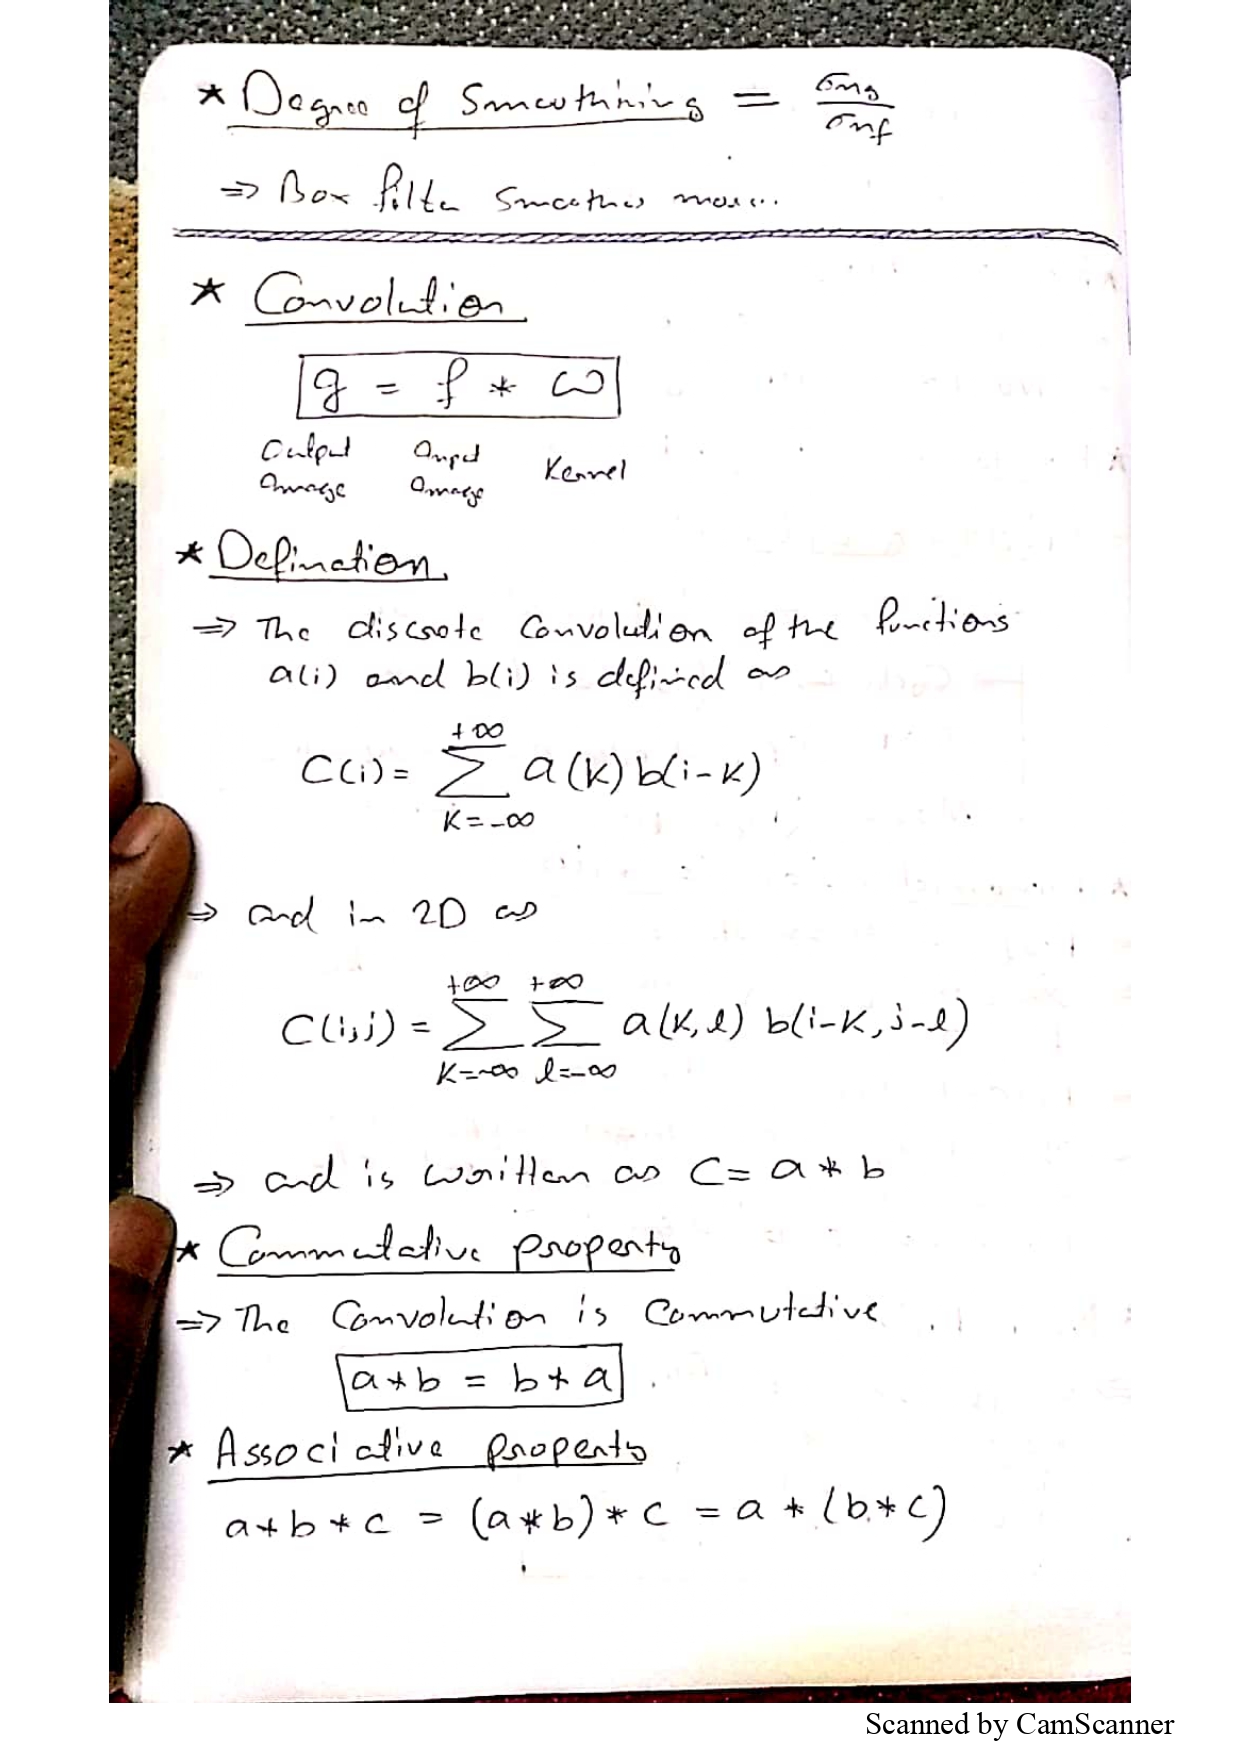 * Degree of Smoothining = σng / σnf
⇒ Box filter smoothes more...
* Convolution
g = f * ω
Output Image   Input Image   Kernel
* Defination
⇒ The discrete convolution of the functions
a(i) and b(i) is defined as
C(i) = ∑_{k=-∞}^{+∞} a(k) b(i-k)
⇒ and in 2D as
C(i,j) = ∑_{k=-∞}^{+∞} ∑_{l=-∞}^{+∞} a(k,l) b(i-k, j-l)
⇒ and is written as C = a * b
* Commutative property
⇒ The Convolution is Commutative
a * b = b * a
* Associative property
a * b * c = (a * b) * c = a * (b * c)
Scanned by CamScanner